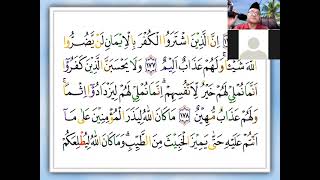 إِنَّ الَّذِينَ اشْتَرَوُا الْكُفْرَ بِالْإِيمَانِ لَنْ يَضُرُّوا
اللَّهَ شَيْئًا وَلَهُمْ عَذَابٌ أَلِيمٌ ١٧٧ وَلَا يَحْسَبَنَّ الَّذِينَ كَفَرُوا
أَنَّمَا نُمْلِي لَهُمْ خَيْرٌ لِأَنْفُسِهِمْ إِنَّمَا نُمْلِي لَهُمْ لِيَزْدَادُوا إِثْمًا
وَلَهُمْ عَذَابٌ مُهِينٌ ١٧٨ مَا كَانَ اللَّهُ لِيَذَرَ الْمُؤْمِنِينَ عَلَى مَا
أَنْتُمْ عَلَيْهِ حَتَّى يَمِيزَ الْخَبِيثَ مِنَ الطَّيِّبِ وَمَا كَانَ اللَّهُ لِيُطْلِعَكُمْ